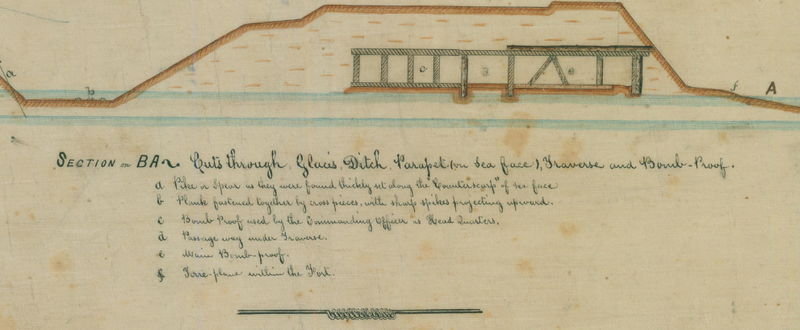 a
b
c
d
e
f
A
SECTION on BA Cuts through, Glacis, Ditch, Parapet (on Sea face), Traverse and Bomb-Proof.
a Pike or Spear as they were found thickly set along the "Counterscarp" of sea face
b Plank fastened together by cross pieces, with sharp spikes projecting upward.
c Bomb Proof used by the Commanding Officer as Head Quarters.
d Passage way under Traverse.
e Main Bomb-proof.
f Terre-plane within the Fort.